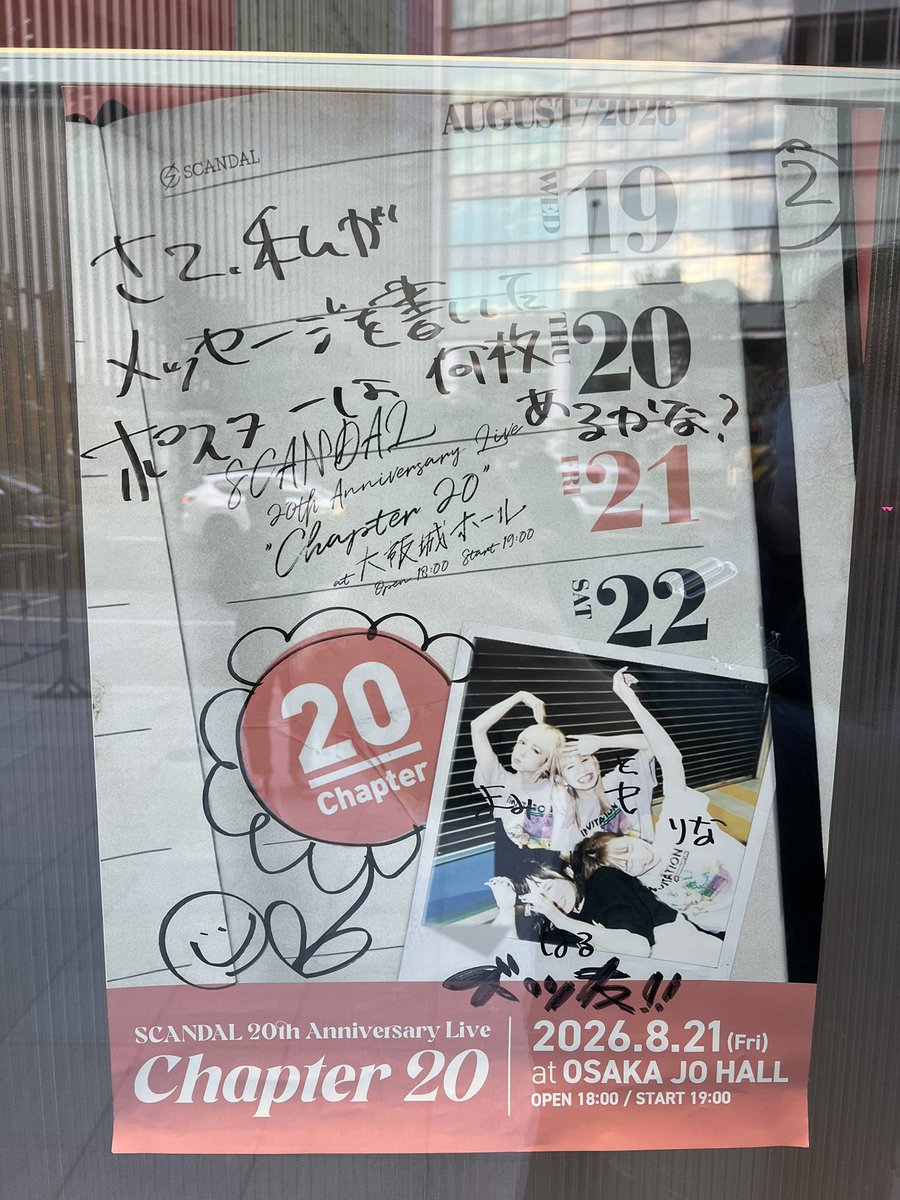 AUGUST / 2026
SCANDAL
WED 19
②
さて、私が
メッセージを書いた
ポスターは何枚
あるかな?
THU 20
SCANDAL
20th Anniversary Live
"Chapter 20"
at 大阪城ホール
Open 18:00 Start 19:00
FRI 21
SAT 22
20
Chapter
INVITATION
まみ
とも
りな
はる
ズッ友!!
SCANDAL 20th Anniversary Live
Chapter 20
2026.8.21 (Fri)
at OSAKA JO HALL
OPEN 18:00 / START 19:00